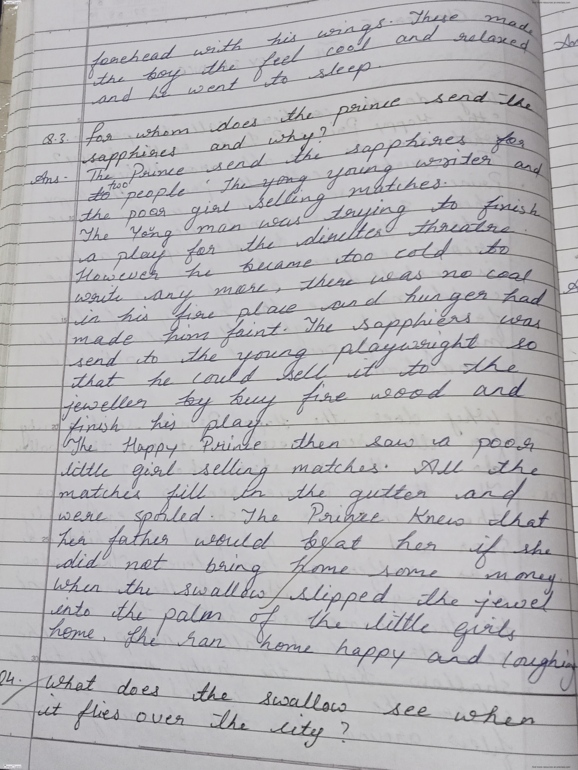 forehead with his wings. These made
the boy the feel cool and relaxed
and he went to sleep.
Q.3. for whom does the prince send the
sapphires and why?
Ans. The Prince send the sapphires for
to two people. The yong young writer and
the poor girl selling matches.
The Yong man was trying to finish
a play for the directer threatre.
However he became too cold to
write any more, there was no coal
in his fire place and hunger had
made him faint. The sapphiers was
send to the young playwright so
that he could sell it to the
jeweller by buy fire wood and
finish his play.
The Happy Prince then saw a poor
little girl selling matches. All the
matches fill in the gutter and
were spoiled. The Prince Knew that
her father would beat her if she
did not bring home some money
When the swallow slipped the jewel
into the palm of the little girls
home. She ran home happy and loughing
Q4. What does the swallow see when
it flies over the city?